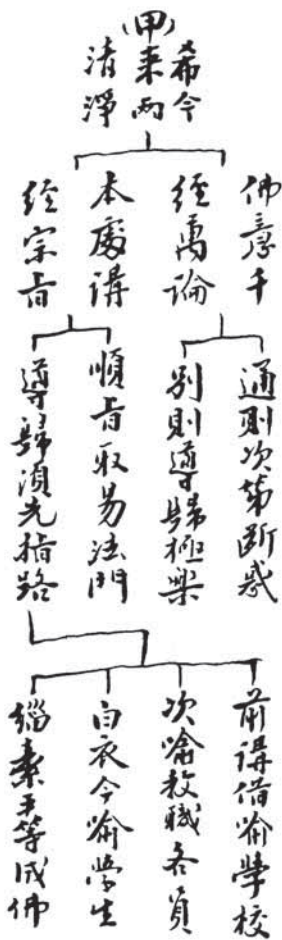 (甲)
希今
来兩
清淨
佛意千
經萬論
本處講
經宗旨
通則次第斷惑
別則導歸極樂
順旨取易法門
導歸須先指路
前講借喻學校
次喻教職各員
白衣今喻學生
緇素平等成佛